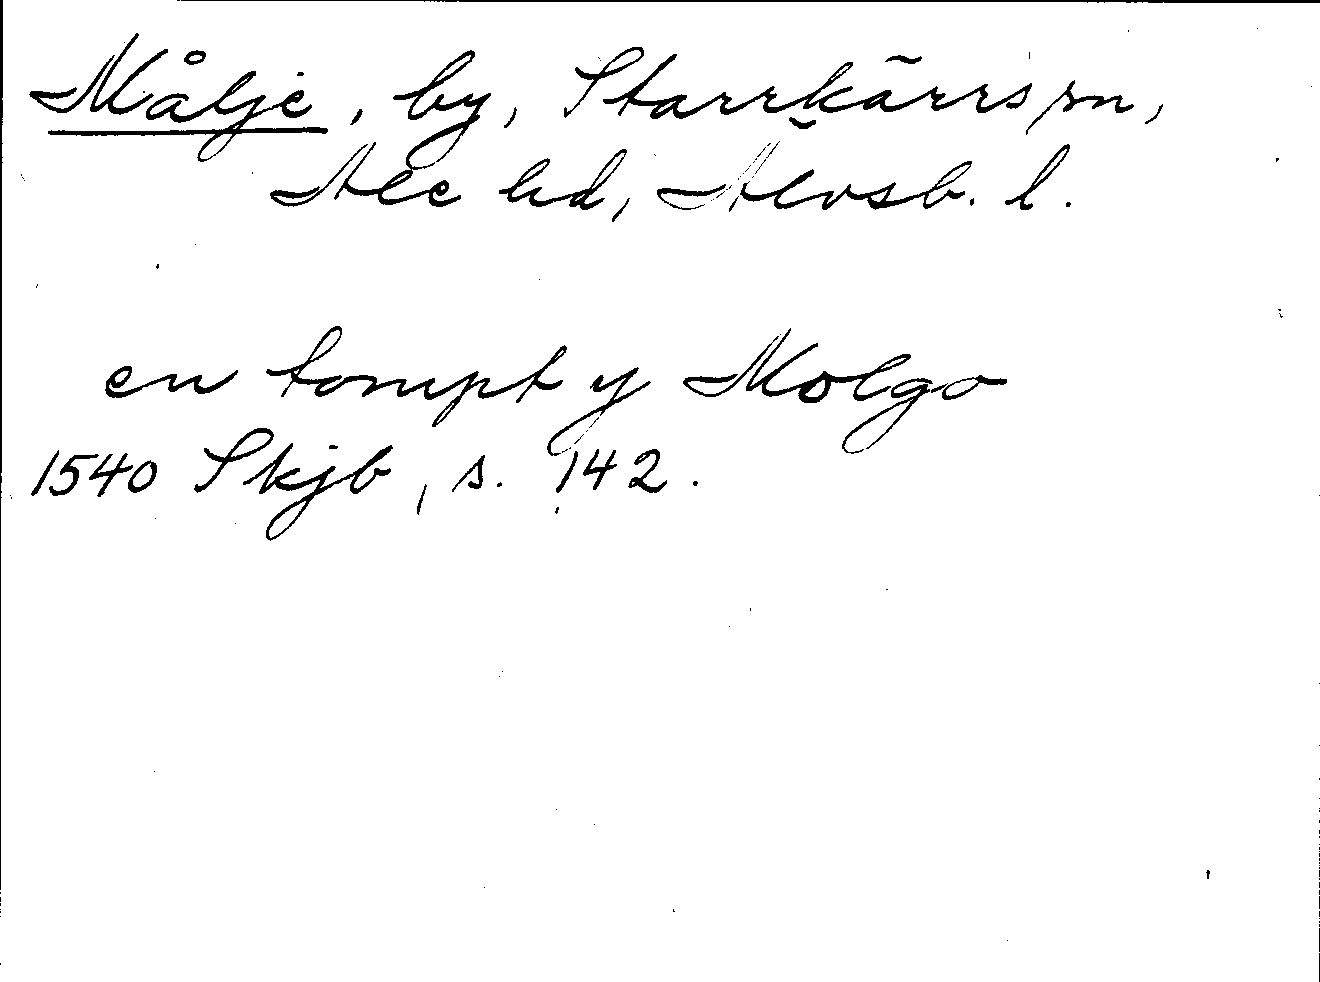 Målje, by, Starrkärrs sn,
Ale hd, Älvsb. l.
en tompt y Molgo
1540 Skjb, s. 142.